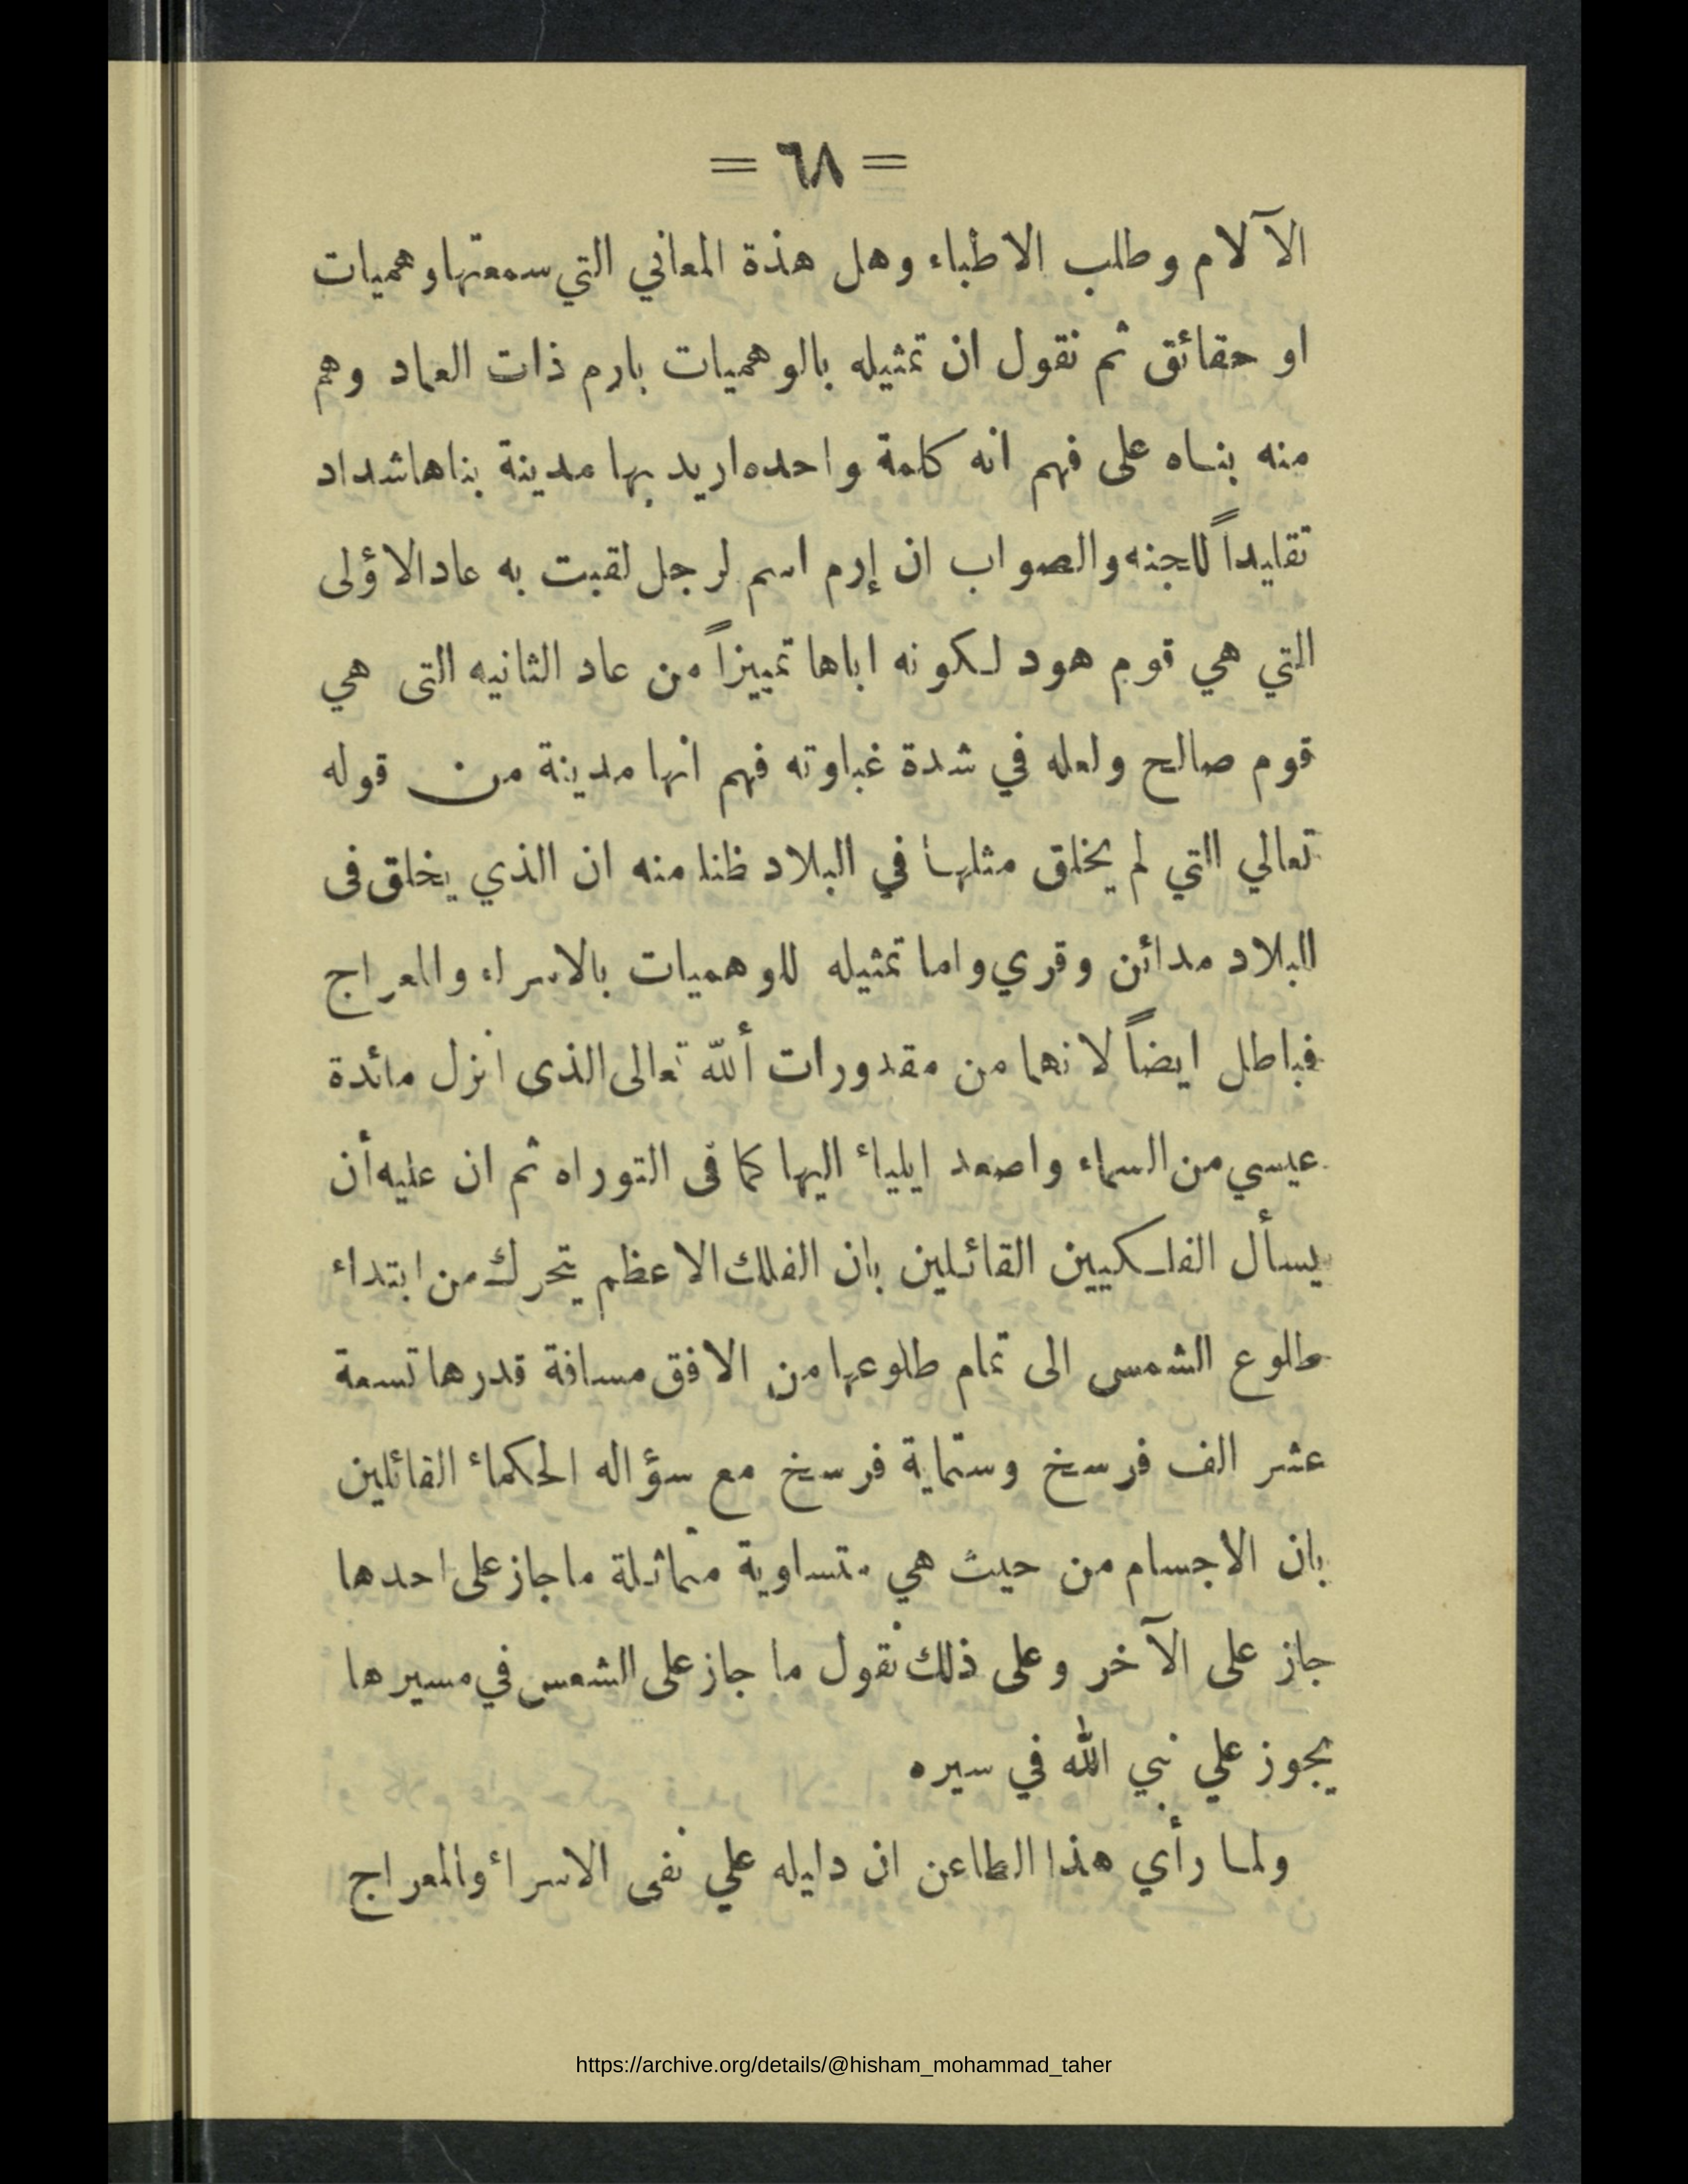 = ٦٨ =
الآلام وطلب الاطباء وهل هذة المعاني التي سمعتها وهميات
او حقائق ثم نقول ان تمثيله بالوهميات بارم ذات العماد وهم
منه بناه على فهم انه كلمة واحده اريد بها مدينة بناها شداد
تقليداً للجنه والصواب ان إرم اسم لرجل لقبت به عاد الاؤلى
التي هي قوم هود لكونه اباها تمييزاً من عاد الثانيه التى هي
قوم صالح ولعله في شدة غباوته فهم انها مدينة من قوله
تعالي التي لم يخلق مثلها في البلاد ظنا منه ان الذي يخلق فى
البلاد مدائن وقري واما تمثيله للوهميات بالاسراء والمعراج
فباطل ايضاً لانهما من مقدورات ألله تعالى الذى انزل مائدة
عيسي من السماء واصعد ايلياء اليها كما فى التوراه ثم ان عليه أن
يسأل الفلكيين القائلين بان الفلك الاعظم يتحرك من ابتداء
طلوع الشمس الى تمام طلوعها من الافق مسافة قدرها تسعة
عشر الف فرسخ وستماية فرسخ مع سؤاله الحكماء القائلين
بان الاجسام من حيث هي متساوية متماثلة ما جاز على احدها
جاز على الآخر وعلى ذلك نقول ما جاز على الشمس في مسيرها
يجوز علي نبي الله في سيره
ولما رأي هذا الطاعن ان دليله علي نفى الاسراء والمعراج
https://archive.org/details/@hisham_mohammad_taher